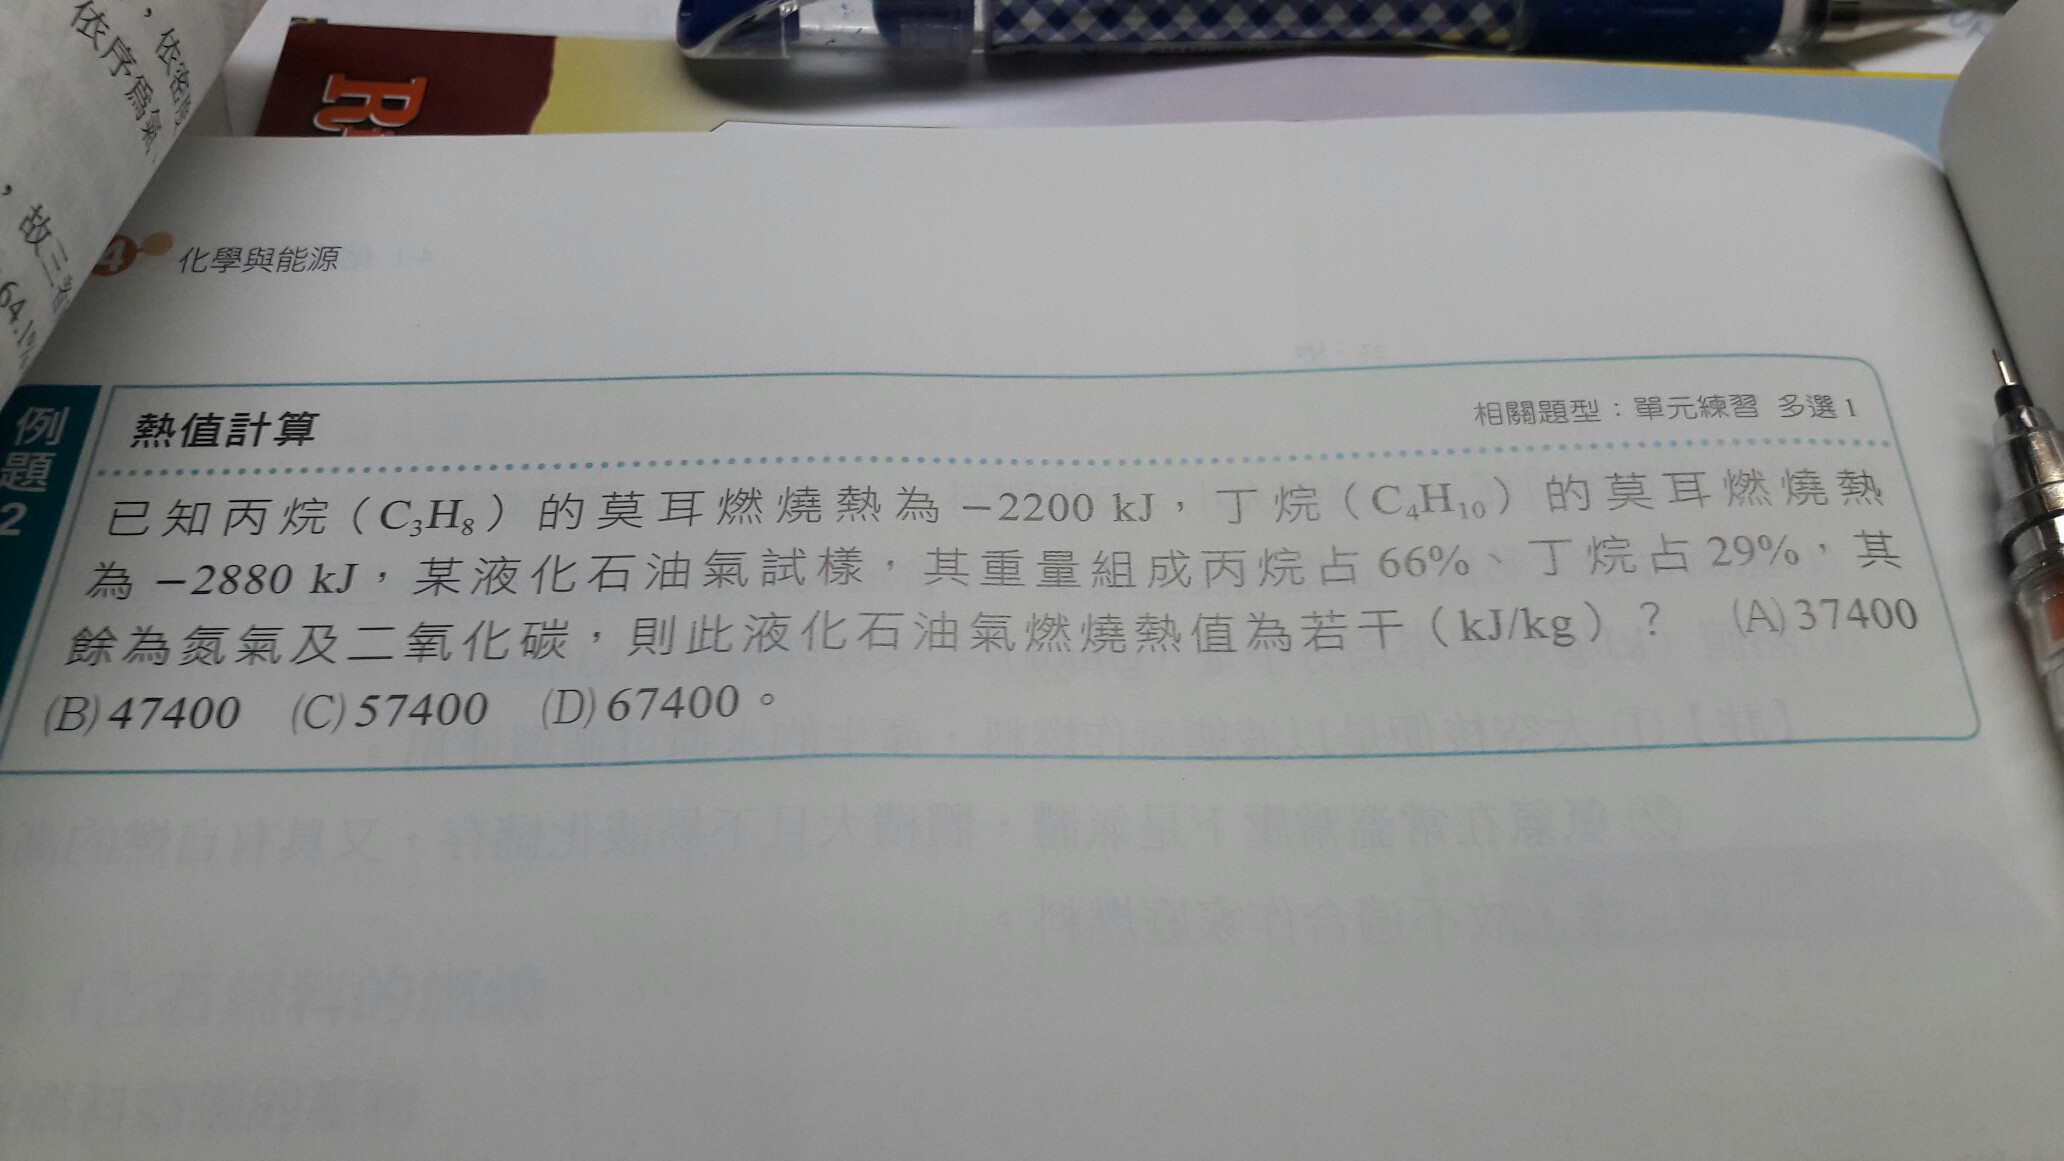 ，依密度
依序為氣
，故三者
64.1%
R
4 化學與能源
例題2
熱值計算
相關題型：單元練習 多選1
已知丙烷（C₃H₈）的莫耳燃燒熱為 −2200 kJ，丁烷（C₄H₁₀）的莫耳燃燒熱
為 −2880 kJ，某液化石油氣試樣，其重量組成丙烷占 66%、丁烷占 29%，其
餘為氮氣及二氧化碳，則此液化石油氣燃燒熱值為若干（kJ/kg）？ (A)37400
(B)47400 (C)57400 (D)67400。